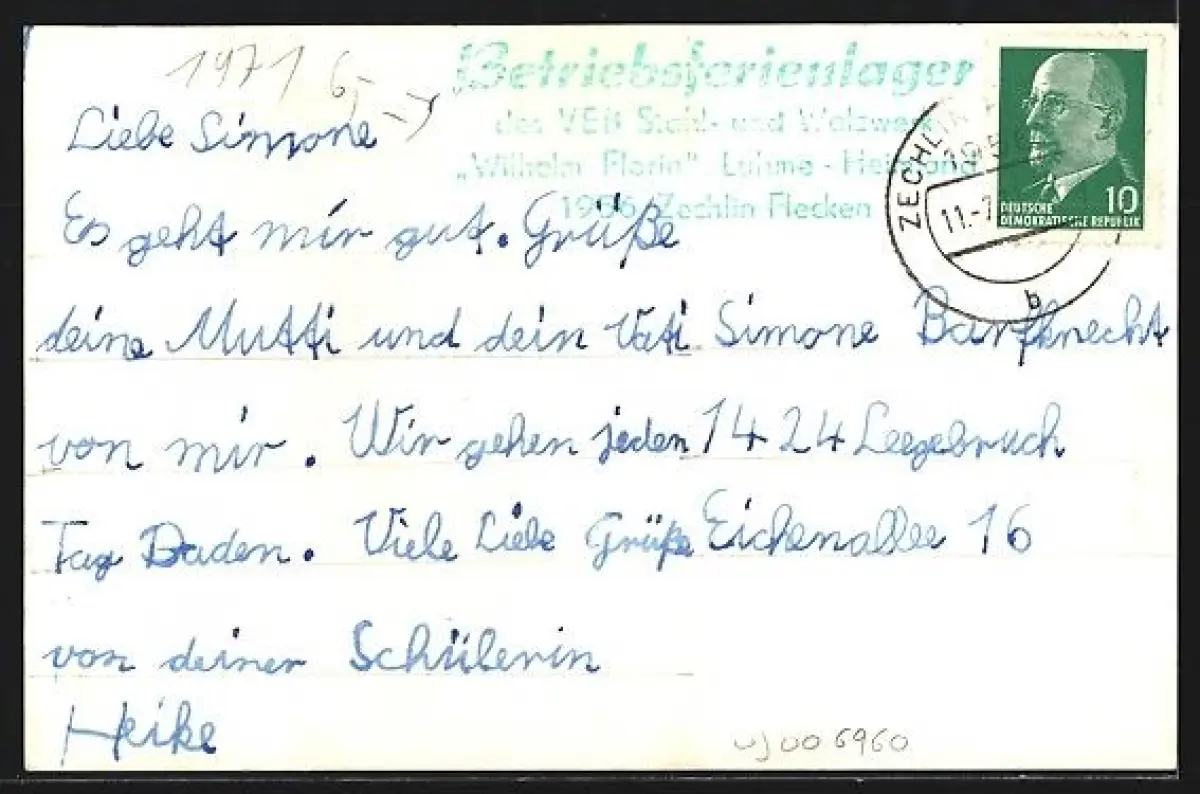 1971 6,-
Betriebsferienlager
des VEB Stahl- und Walzwerk
"Wilhelm Florin" Luhme - Heimland
Zechlin Flecken
ZECHLIN
11.-7
b
10
DEUTSCHE
DEMOKRATISCHE REPUBLIK
Liebe Simone
Es geht mir gut. Grüße
deine Mutti und dein Vati
von mir. Wir gehen jeden
Tag Baden. Viele Liebe Grüße
von deiner Schülerin
Heike
Simone Barfknecht
1424 Leegebruch
Eichenallee 16
006960